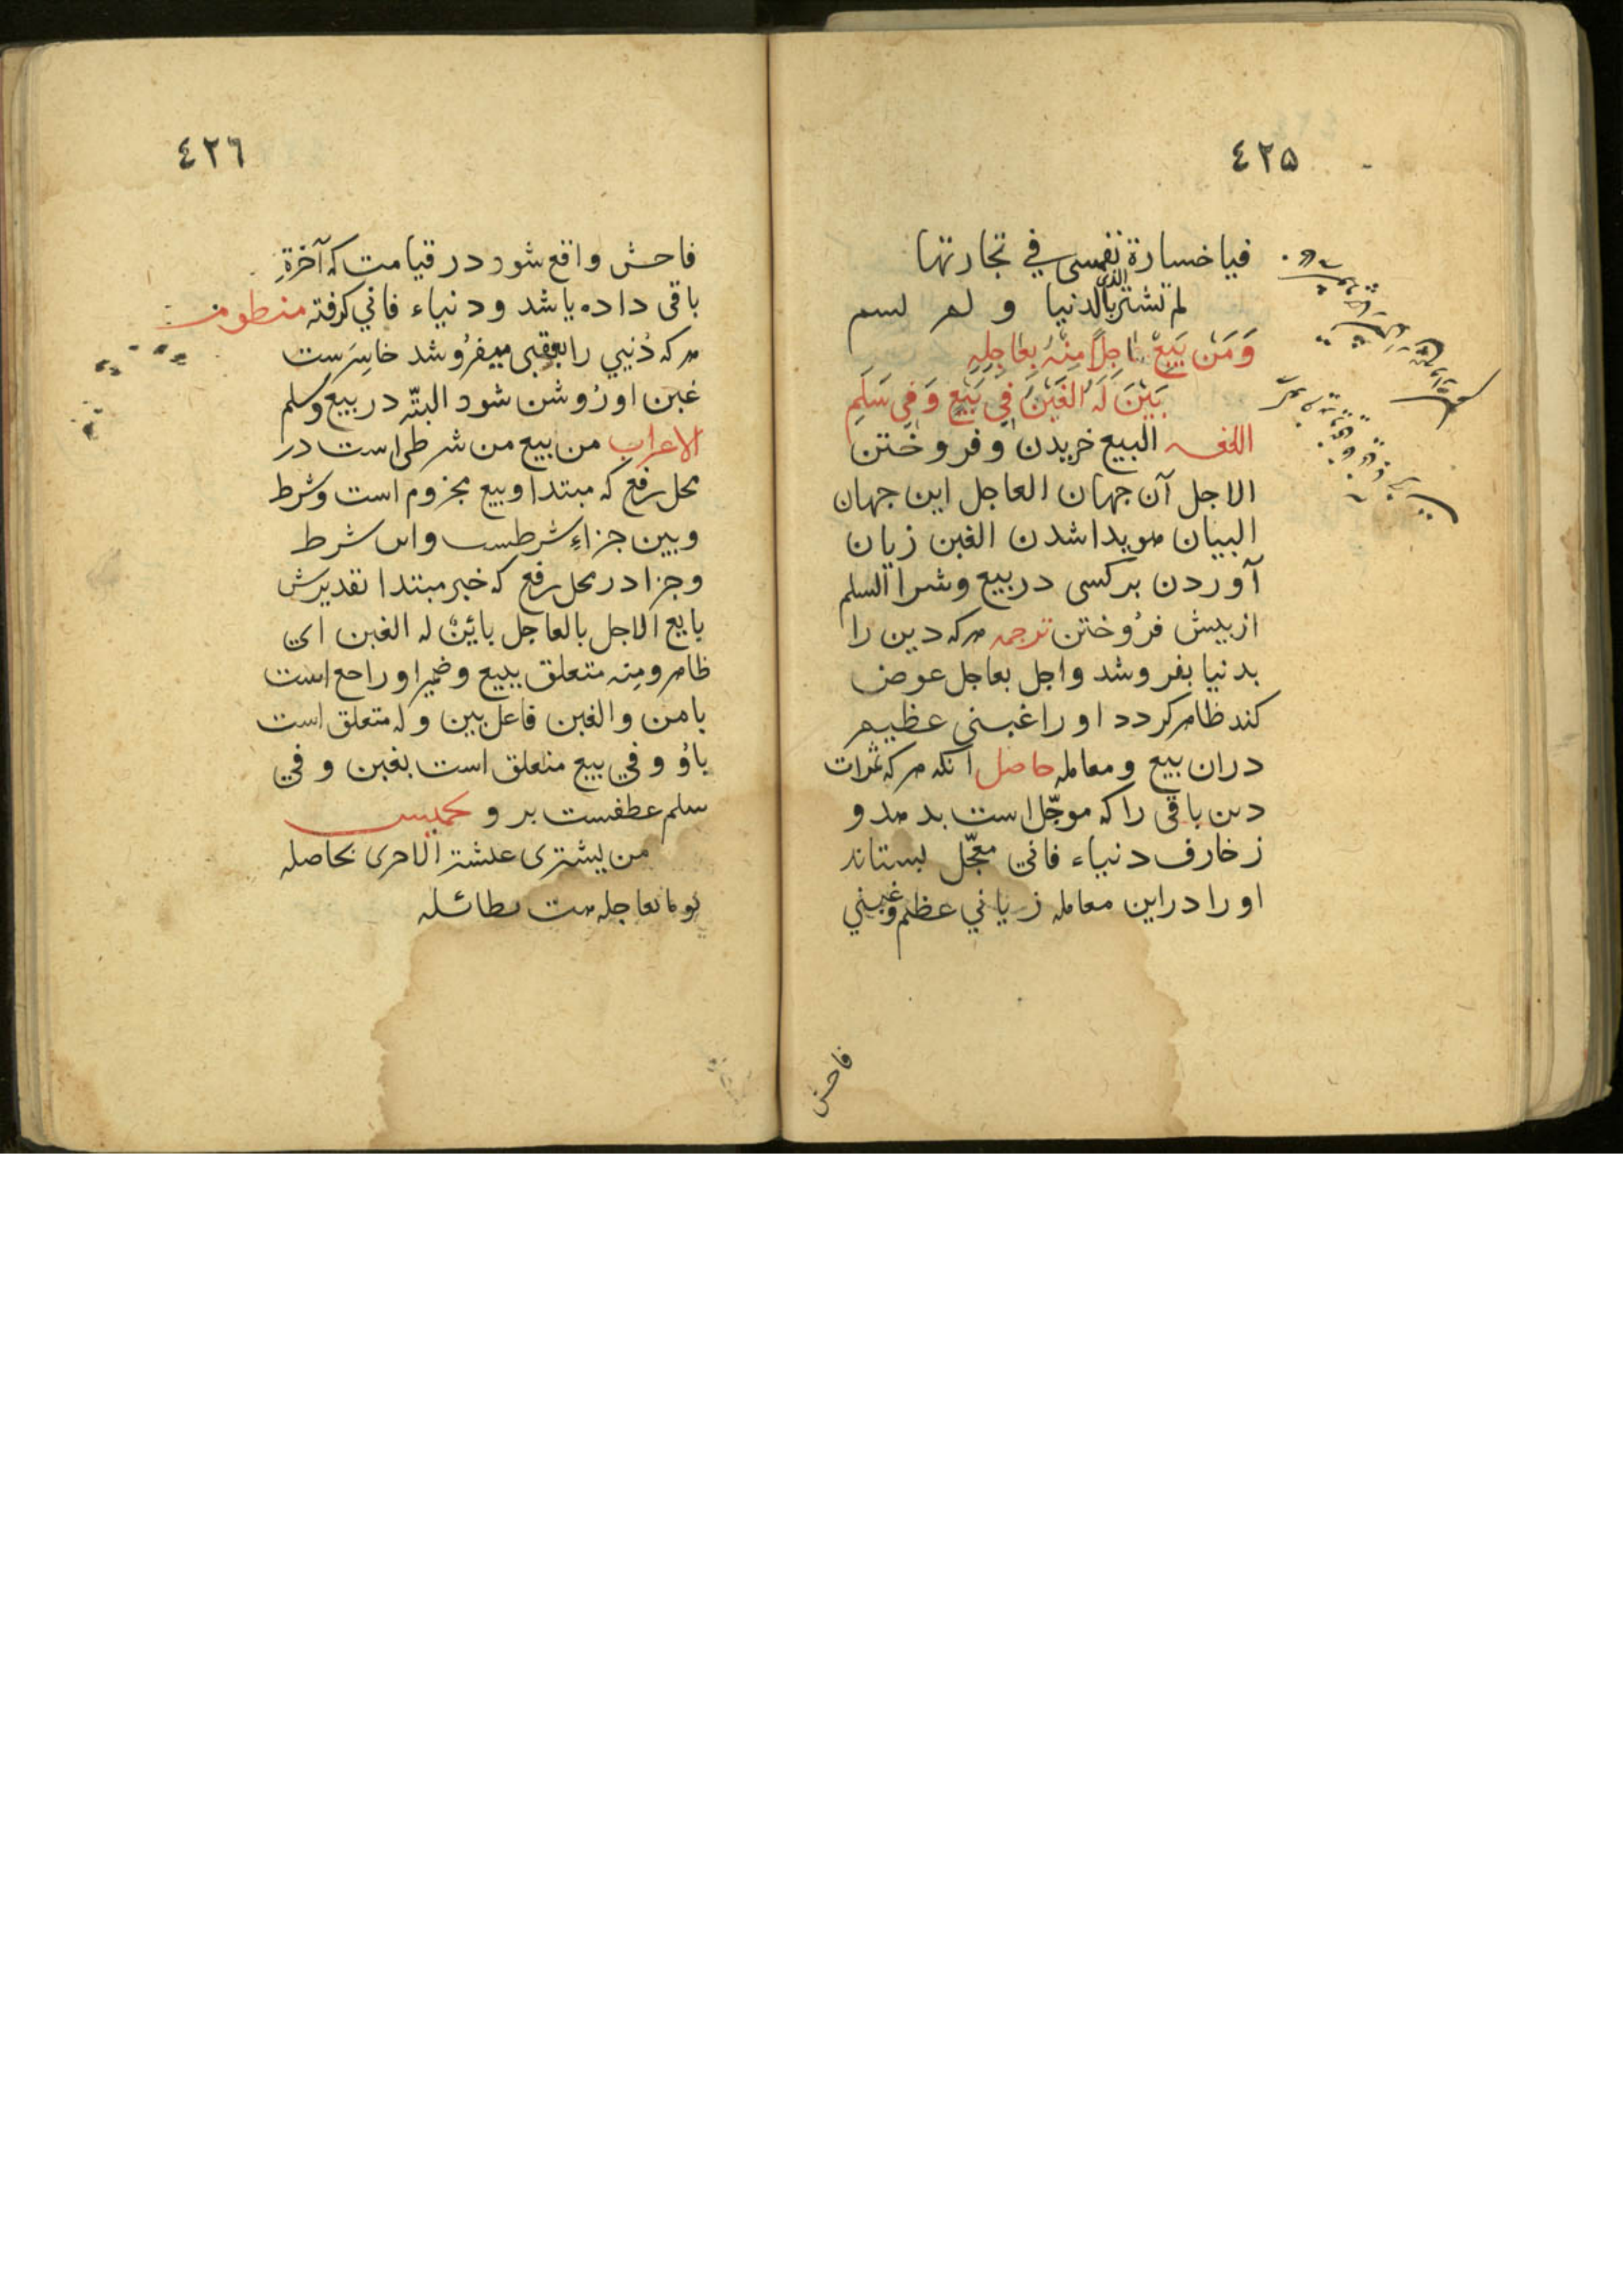 ٤٢٥
فياخسارة نفسى في تجارتها
لم تشتر الدين بالدنيا و لم تسم
وَمَنْ يَبِعْ اٰجِلًا مِنْهُ بِعَاجِلِهِ
يَبِنْ لَهُ الغَبْنُ فِي بَيْعٍ وَفِي سَلَمِ
اللغه البيع خريدن وفروختن
الاجل آن جهان العاجل اين جهان
البيان هويدا شدن الغبن زيان
آوردن بر كسى در بيع وشرا السلم
از پيش فرُوختن ترجمه هركه دين را
بدنيا بفروشد واجل بعاجل عوض
كند ظاهر كردد اورا غبنى عظيم
دران بيع ومعامله حاصل آنكه هركه ثمرات
دين باقى راكه موجّل است بدهد و
زخارف دنياء فاني معجّل بستاند
اورا دراين معامله زياني عظيم وغبني
فاحش
٤٢٦
فاحش واقع شود در قيامت كه آخرةِ
باقى داده باشد ودنياء فاني كرفته منظومه
هركه دُنيي را بعقبى ميفرُوشد خاسِرَست
غبن او رُوشن شود البتّه در بيع وسلم
الاعراب من يبع من شرطى است در
محل رفع كه مبتدا ويبع مجزوم است وشرط
ويبن جزاءِ شرطست واين شرط
وجزا در محل رفع كه خبر مبتدا تقديرش
بايع الاجل بالعاجل بائِنٌ له الغبن اي
ظاهر ومنه متعلق ببيع وضمير او راجع است
بامن والغبن فاعل يبن وله متعلق است
باوُ وفي بيع متعلق است بغبن وفي
سلم عطفست بر و تخميس
من يشترى الاخرى بحاصله